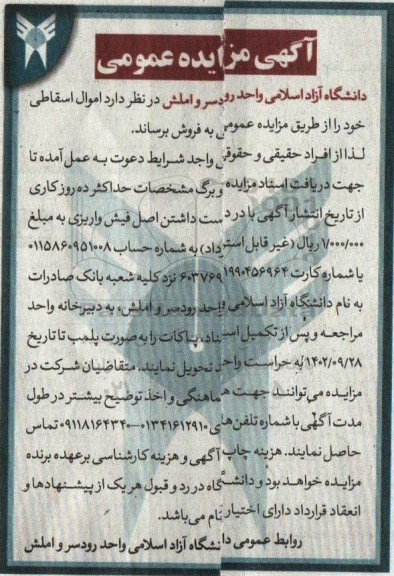 آگهی مزایده عمومی
دانشگاه آزاد اسلامی واحد رودسر و املش در نظر دارد اموال اسقاطی
خود را از طریق مزایده عمومی به فروش برساند.
لذا از افراد حقیقی و حقوقی واجد شرایط دعوت به عمل آمده تا
جهت دریافت اسناد مزایده و برگ مشخصات حداکثر ده روز کاری
از تاریخ انتشار آگهی با در دست داشتن اصل فیش واریزی به مبلغ
۷۰۰۰/۰۰۰ ریال (غیر قابل استرداد) به شماره حساب ۰۱۱۵۸۶۰۹۵۱۰۰۸
یا شماره کارت ۶۰۳۷۶۹۱۹۹۰۴۵۶۹۶۴ نزد کلیه شعبه بانک صادرات
به نام دانشگاه آزاد اسلامی واحد رودسر و املش، به دبیرخانه واحد
مراجعه و پس از تکمیل اسناد، پاکات را به صورت پلمپ تا تاریخ
۱۴۰۲/۰۹/۲۸ به حراست واحد تحویل نمایند. متقاضیان شرکت در
مزایده می‌توانند جهت هماهنگی و اخذ توضیح بیشتر در طول
مدت آگهی با شماره تلفن‌های ۰۱۳۴۱۶۱۲۹۱۰-۰۹۱۱۸۱۶۴۳۴۰ تماس
حاصل نمایند. هزینه چاپ آگهی و هزینه کارشناسی بر عهده برنده
مزایده خواهد بود و دانشگاه در رد و قبول هر یک از پیشنهادها و
انعقاد قرارداد دارای اختیار تام می‌باشد.
روابط عمومی دانشگاه آزاد اسلامی واحد رودسر و املش